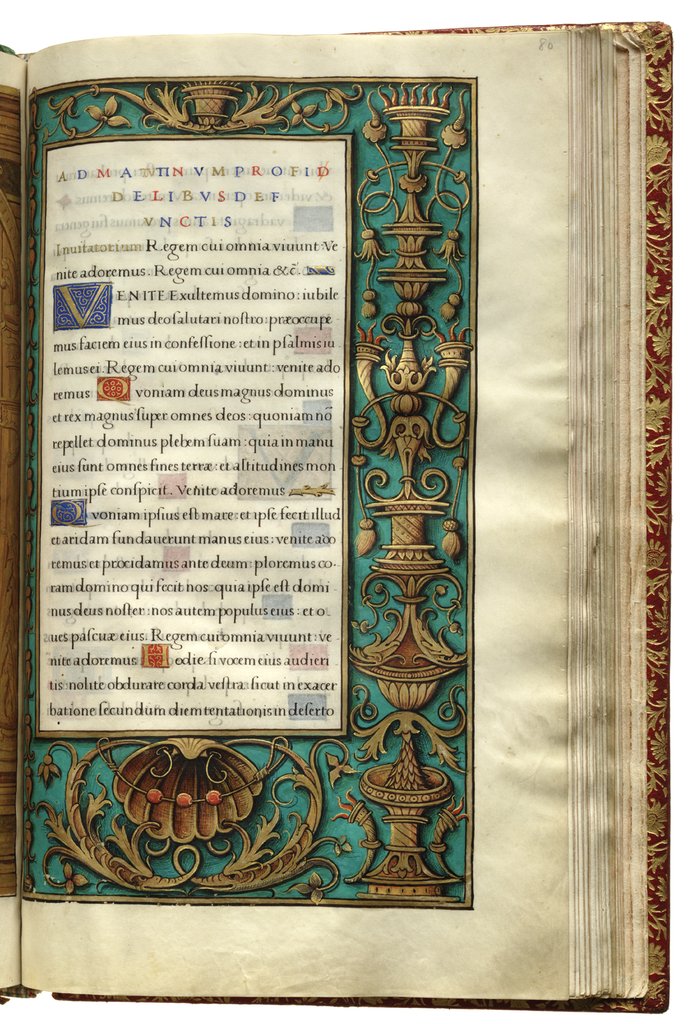 80
AD MATVTINVM PRO FID
ELIBVS DEF
VNCTIS
Inuitatorium Regem cui omnia viuunt Ve
nite adoremus. Regem cui omnia &c̃.
VENITE Exultemus domino: iubile
mus deo salutari nostro: præoccupe
mus faciem eius in confessione: et in psalmis iu
lemus ei. Regem cui omnia viuunt: venite ado
remus Quoniam deus magnus dominus
et rex magnus super omnes deos: quoniam nõ
repellet dominus plebem suam: quia in manu
eius sunt omnes fines terræ: et altitudines mon
tium ipse conspicit. Venite adoremus
Quoniam ipsius est mare: et ipse fecit illud
et aridam fundauerunt manus eius: venite ado
remus et procidamus ante deum: ploremus co-
ram domino qui fecit nos: quia ipse est domi
nus deus noster: nos autem populus eius: et o
ues pascuæ eius. Regem cui omnia viuunt: ve
nite adoremus Hodie si vocem eius audieri
tis: nolite obdurare corda vestra: sicut in exacer
batione secundum diem tentationis in deserto